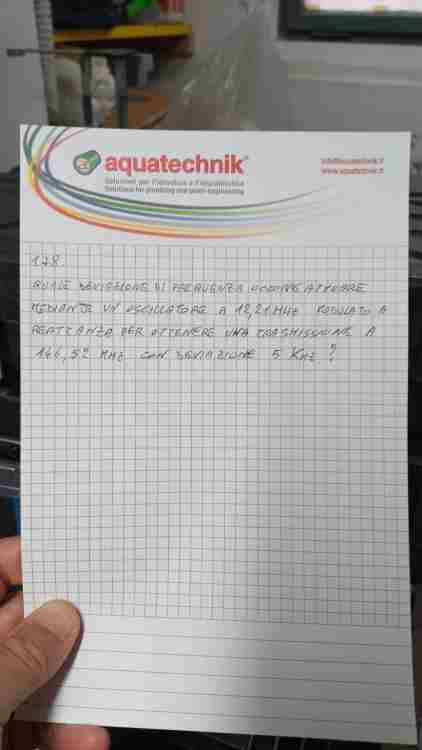 aquatechnik®
Soluzioni per l'idraulica e l'impiantistica
Solutions for plumbing and plant-engineering
info@aquatechnik.it
www.aquatechnik.it
178
QUALE DEVIAZIONE DI FREQUENZA OCCORRE ATTUARE
MEDIANTE UN OSCILLATORE A 12,21 MHz MODULATO A
REATTANZA PER OTTENERE UNA TRASMISSIONE A
146,52 MHz CON DEVIAZIONE 5 KHz ?